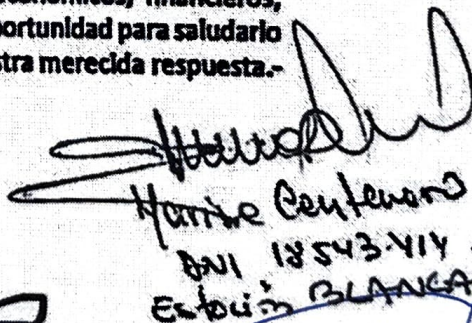 económicos, financieros,
oportunidad para saludarlo
stra merecida respuesta.-
Centenaro
DNI 18543.414
Estación BLANCA